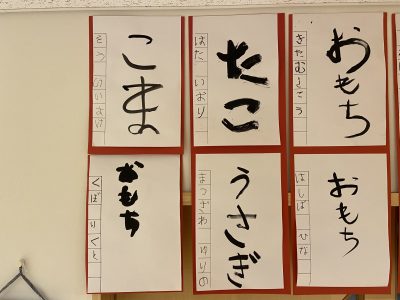 おもち
きたむら そう
たこ
はた いおり
こま
そう
おもち
はしば ひな
うさぎ
まつざわ ゆりの
おもち
くぼ りくと